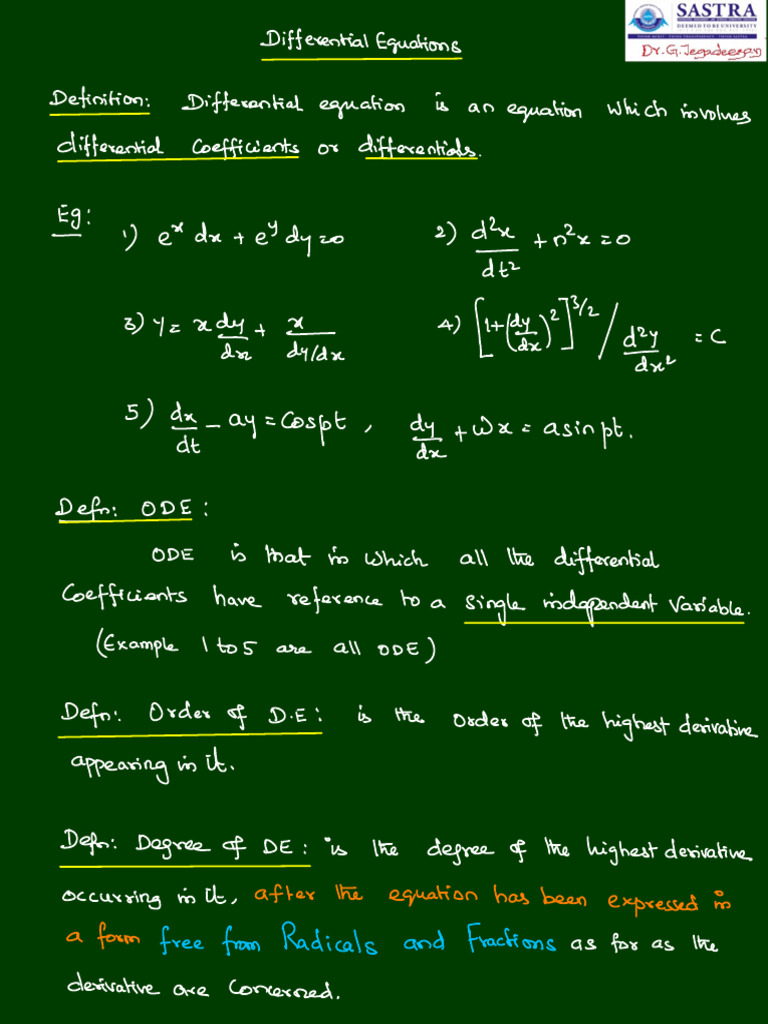 SASTRA
DEEMED TO BE UNIVERSITY
Dr.G.Jegadeesan
Differential Equations
Definition: Differential equation is an equation which involves
differential Coefficients or differentials.
Eg:
1) e^x dx + e^y dy = 0
2) d²x/dt² + n²x = 0
3) y = x dy/dx + x/(dy/dx)
4) [1+(dy/dx)²]^3/2 / d²y/dx² = C
5) dx/dt - ay = Cospt , dy/dx + wx = a sin pt.
Defn: ODE :
ODE is that in which all the differential
Coefficients have reference to a single independent Variable.
(Example 1 to 5 are all ODE)
Defn: Order of D.E : is the order of the highest derivative
appearing in it.
Defn: Degree of DE : is the degree of the highest derivative
occurring in it, after the equation has been expressed in
a form free from Radicals and Fractions as for as the
derivative are concerned.